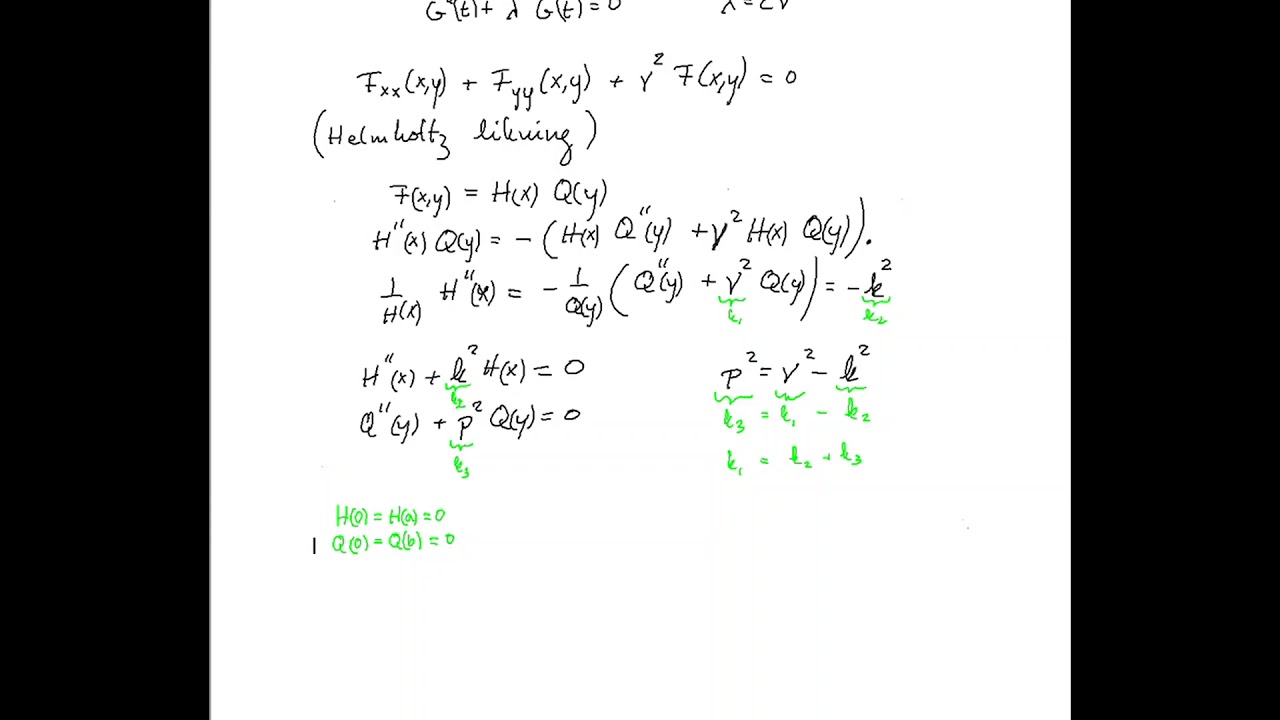 G̈(t) + λ² G(t) = 0    λ = cν
F_xx(x,y) + F_yy(x,y) + ν² F(x,y) = 0
(Helmholtz likning)
F(x,y) = H(x) Q(y)
H''(x) Q(y) = - (H(x) Q''(y) + ν² H(x) Q(y)).
1/H(x) H''(x) = - 1/Q(y) (Q''(y) + ν² Q(y)) = - k²
k₁    k₂
H''(x) + k² H(x) = 0    p² = ν² - k²
k₂    k₃ = k₁ - k₂
Q''(y) + p² Q(y) = 0
k₃    k₁ = k₂ + k₃
H(0) = H(a) = 0
Q(0) = Q(b) = 0